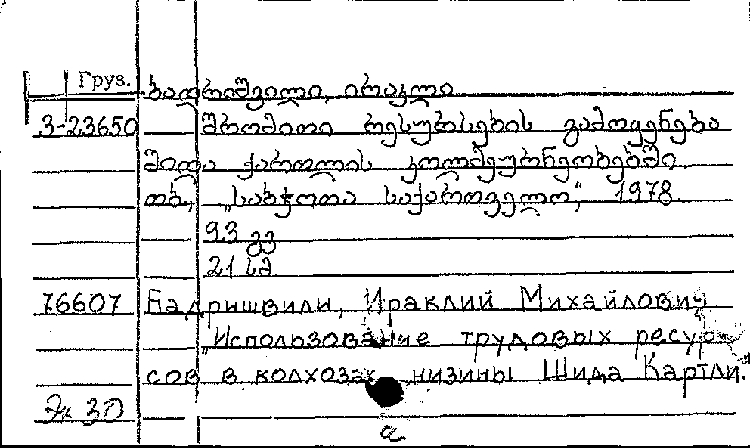 Груз.
ბადრიშვილი, ირაკლი
3-23650 შრომითი რესურსების გამოყენება
შიდა ქართლის კოლმეურნეობებში.
თბ., „საბჭოთა საქართველო“, 1978.
93 გვ
21 სმ
76607 Бадришвили, Ираклий Михайлович
„Использование трудовых ресур-
сов в колхозах низины Шида Картли.
Эк 30
a